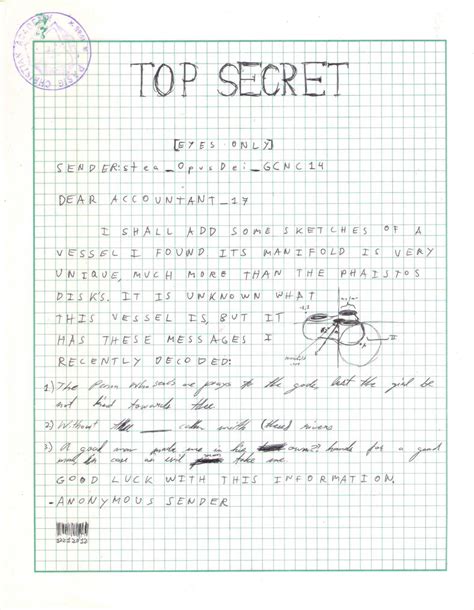 PARIS CHRISTIAN ACADEMY
TOP SECRET
[EYES ONLY]
SENDER:stea_OpusDei_GCNC14
DEAR ACCOUNTANT_17
I SHALL ADD SOME SKETCHES OF A
VESSEL I FOUND ITS MANIFOLD IS VERY
UNIQUE, MUCH MORE THAN THE PHAISTOS
DISK'S. IT IS UNKNOWN WHAT
THIS VESSEL IS, BUT IT
HAS THESE MESSAGES I
RECENTLY DECODED:
1) The Person Who sends me prays to the gods, lest the girl be
not kind towards thee.
2) Without ___ with (these) rivers
3) A good man made me in his own?? hands for a good
man, in case an evil take me.
GOOD LUCK WITH THIS INFORMATION.
-ANONYMOUS SENDER